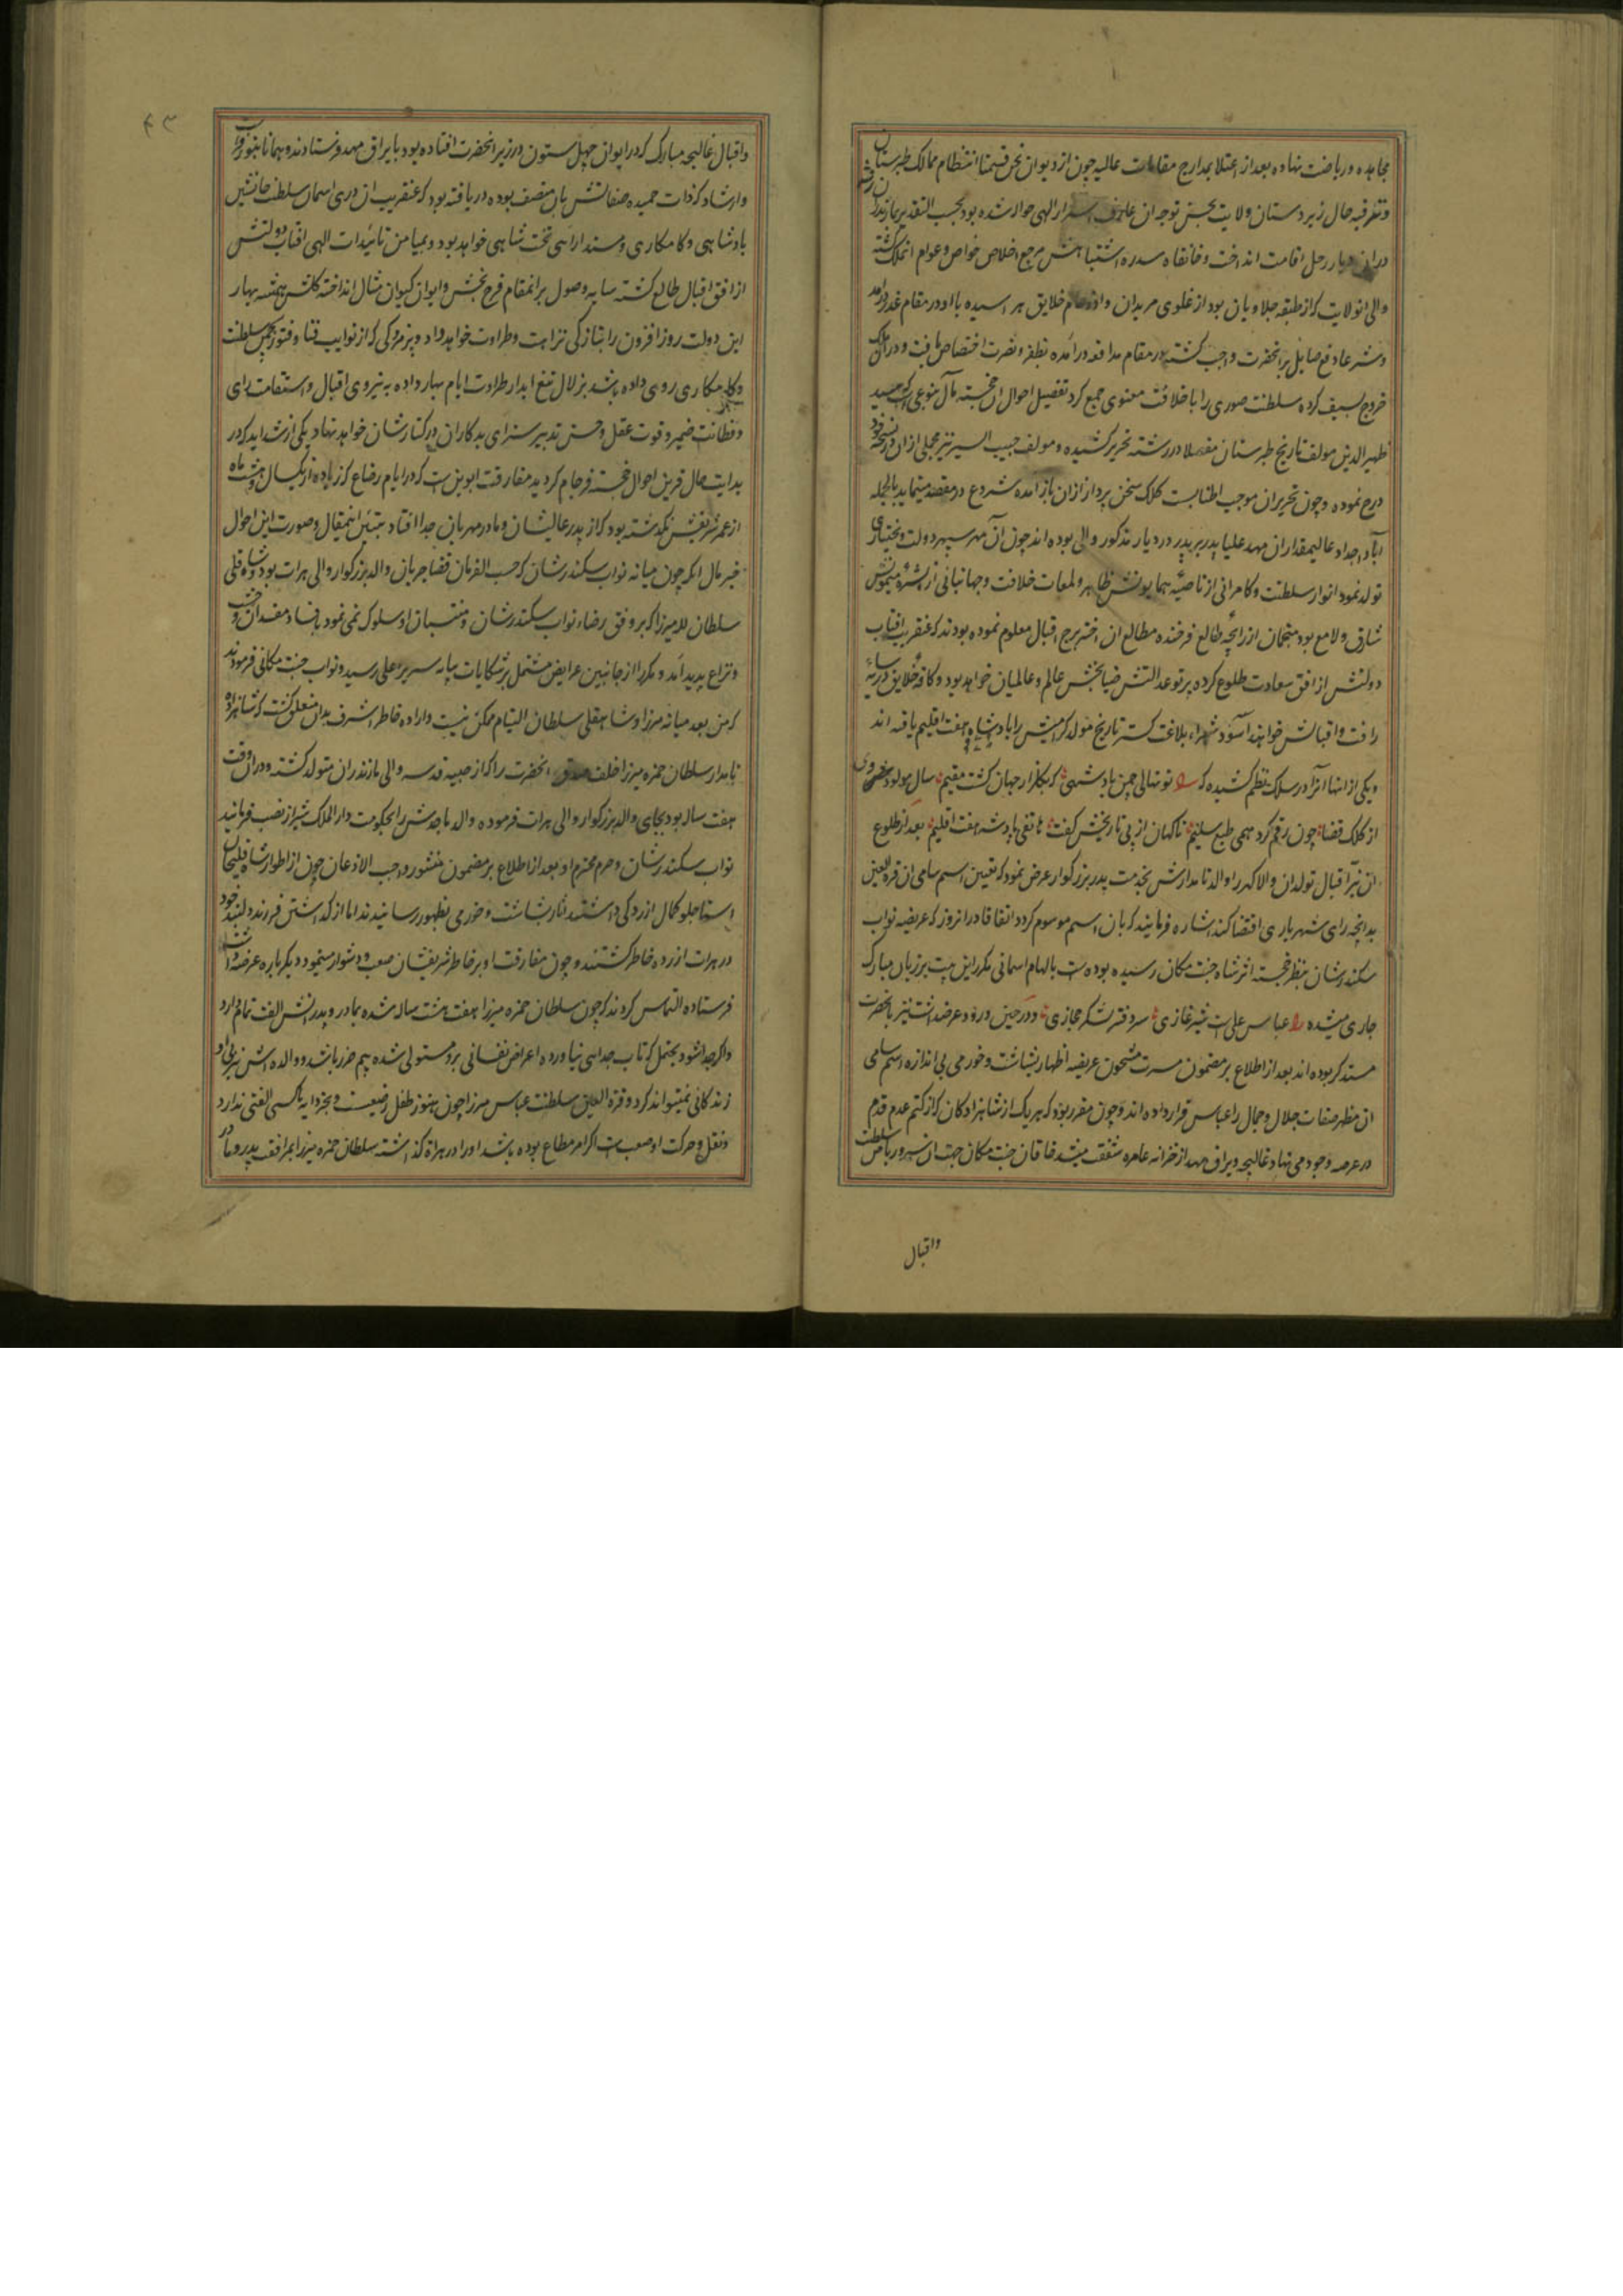 مجاهده و ریاضت نهاده بعد از اعتلا بمدارج مقامات عالیه چون از دیوان نحن قسمنا انتظام ممالک طبرستان
و ترفیه حال زیردستان ولایت بحسن توجه آن عارف اسرار الهی حواله شده بود بحسب التقدیر بمازندران رفته
در ان دیار رحل اقامت انداخت و خانقاه سدره اشتباهش مرجع اخلاص خواص و عوام انملک گشته
والی انولایت که از طبقه جلاویان بود از غلوی مریدان و ازدحام خلایق هراسیده با او در مقام غدر درآمد
و شرعا دفع صایل بر انحضرت واجب گشته در مقام مدافعه درآمده بظفر و نصرت اختصاص یافت و در ان ملک
خروج بسیف کرده سلطنت صوری را با خلافت معنوی جمع کرد تفصیل احوال ان خجسته مآل بنوعی که سید
ظهیرالدین مولف تاریخ طبرستان مفصلا در رشته تحریر کشیده و مولف حبیب السیر نیز مجملی از ان در نسخه خود
درج نموده و چون تحریر ان موجب اطنابست کلک سخن پرداز از ان باز آمده شروع در مقصد مینماید بالجمله
آباء و اجداد عالیمقدار ان مهد علیا پدر بر پدر در دیار مذکور والی بوده اند چون آن مهر سپهر دولت و بختیاری
تولد نمود انوار سلطنت و کامرانی از ناصیه همایونش ظاهر و لمعات خلافت و جهانبانی از بشره میمونش
شارق و لامع بود منجمان از زایجه طالع فرخنده مطالع ان اختر برج اقبال معلوم نموده بودند که عنقریب افتاب
دولتش از افق سعادت طلوع کرده پرتو عدالتش ضیابخش عالم و عالمیان خواهد بود و کافه خلایق در سایه
رافت و اقبالش خواهند آسود شعراء بلاغت گستر تاریخ مولد گرامیش را پادشاه هفت اقلیم یافته اند
و یکی از انها انرا در سلک نظم کشیده که نو نهالی چمن پادشهی که بگلزار جهان گشت مقیم سال مولود خسروی
از کلک قضا چون رقم کرد همی طبع سلیم ناگهان از پی تاریخش گفت هاتفی پادشه هفت اقلیم بعد از طلوع
ان نیر اقبال تولد ان والا گهر را والد نامدارش بخدمت پدر بزرگوار عرض نمود که تعیین اسم سامی ان قره العین
بدانچه رای شهریاری اقتضا کند اشاره فرمایند که بان اسم موسوم گردد اتفاقا در انروز که عریضه نواب
سکندرشان بنظر خجسته اثر شاه جنت مکان رسیده بوده است بالهام اسمانی مکرر این بیت بر زبان مبارک
جاری میشده عباس علی است شیر غازی سر دفتر لشکر حجازی و در حین ورود عرضداشت نیز بانحضرت
متذکر بوده اند بعد از اطلاع بر مضمون مسرت مشحون عریضه اظهار بشاشت و خورمی بی اندازه اسم سامی
ان مظهر صفات جلال و جمال را عباس قرار داده اند و چون مقرر بود که هر یک از شاهزادکان که از کتم عدم قدم
در عرصه وجود می نهاد غالیچه و یراق مهد از خزانه عامره شفقت میشد خاقان جنت مکان جهت ان سرو ریاض سلطنت
واقبال
۴۳
و اقبال غالیچه مبارک که در ایوان چهل ستون در زیر انحضرت افتاده بود با یراق مهد فرستادند و همانا بنور ولایت
و ارشاد که ذات حمیده صفاتش بان متصف بوده دریافته بود که عنقریب ان دری اسمان سلطنت جانشین
پادشاهی و کامکاری و مسند ارای تخت شاهی خواهد بود و بمیامن تائیدات الهی افتاب دولتش
از افق اقبال طالع گشته سایه وصول بر انمقام فرح بخش و ایوان کیوان مثال انداخته گلشن همیشه بهار
این دولت روز افزون را بتازگی نزاهت و طراوت خواهد داد و پژمردگی که از نوایب فنا و فتور بچمن سلطنت
و کامکاری روی داده باشد بزلال تیغ ابدار طراوت ایام بهار داده به نیروی اقبال و استقامت رای
و فطانت ضمیر و قوت عقل و حسن تدبیر سزای بدکاران در کنارشان خواهد نهاد یکی از شداید که در
بدایت حال قرین احوال خجسته فرجام گردید مفارقت ابوین است که در ایام رضاع که زیاده از یکسال و هشت ماه
از عمر شریفش نگذشته بود که از پدر عالیشان و مادر مهربان جدا افتاد تبیین اینمقال و صورت این احوال
خیر مال انکه چون میانه نواب سکندرشان که حسب الفرمان قضا جریان والد بزرگوار والی هرات بود و شاه قلی
سلطان لله میرزا که بر وفق رضاء نواب سکندرشان و منتسبان او سلوک نمی نمود بافساد مفسدان وحشت
و نزاع پدید آمد و مکررا از جانبین عرایض مشتمل بر شکایات بپایه سریر اعلی رسید و نواب جنت مکانی فرمودند
که من بعد میانه میرزا و شاهقلی سلطان التیام ممکن نیست و اراده خاطر اشرف بدان متعلق گشت که شاهزاده
نامدار سلطان حمزه میرزا خلف صدق انحضرت را که از صبیه قدسیه والی مازندران متولد گشته و در ان وقت
هفت ساله بود بجای والد بزرگوار والی هرات فرموده والد ماجدش را بحکومت دارالملک شیراز نصب فرمایند
نواب سکندرشان و حرم محترم او بعد از اطلاع بر مضمون منشور واجب الاذعان چون از اطوار شاهقلیخان
استاجلو کمال ازردگی داشتند اثار بشاشت و خورمی بظهور رسانیدند اما از گذاشتن فرزند دلبند خود
در هرات ازرده خاطر گشتند و چون مفارقت او بر خاطر شریفشان صعب و دشوار مینمود دیگر باره عرضه داشت
فرستاده التماس کردند که چون سلطان حمزه میرزا هفت هشت ساله شده بمادر و پدرش الفت تمام دارد
و اگر جدا شود یحتمل که تاب جدایی نیاورده اعراض نفسانی برو مستولی شده بیم ضرر باشد و والده اش نیز بی او
زندگانی نمیتواند کرد و قره العین سلطنت عباس میرزا چون هنوز طفل رضیعست و بجز دایه با کسی الفتی ندارد
و نقل و حرکت او صعب است اگر امر مطاع بوده باشد او را در هراة گذاشته سلطان حمزه میرزا بمرافقت پدر و مادر